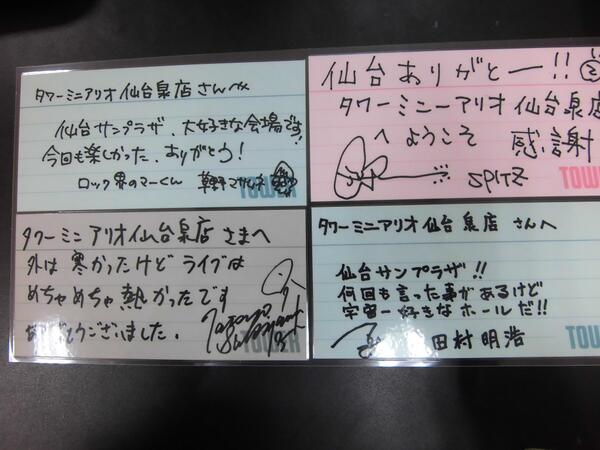 タワーミニアリオ仙台泉店さんへ
仙台サンプラザ、大好きな会場です!
今回も楽しかった、ありがとう!
ロック界のマーくん 草野マサムネ
TOWER
仙台ありがとー!!
タワーミニーアリオ仙台泉店
へ ようこそ 感謝
SPITZ
TOWE
タワーミニ アリオ仙台泉店 さまへ
外は寒かったけど ライブは
めちゃめちゃ熱かったです
ありがとうございました.
TOWER
タワーミニアリオ仙台泉店 さんへ
仙台サンプラザ!!
何回も言った事があるけど
宇宙一好きなホールだ!!
田村明浩
TOW